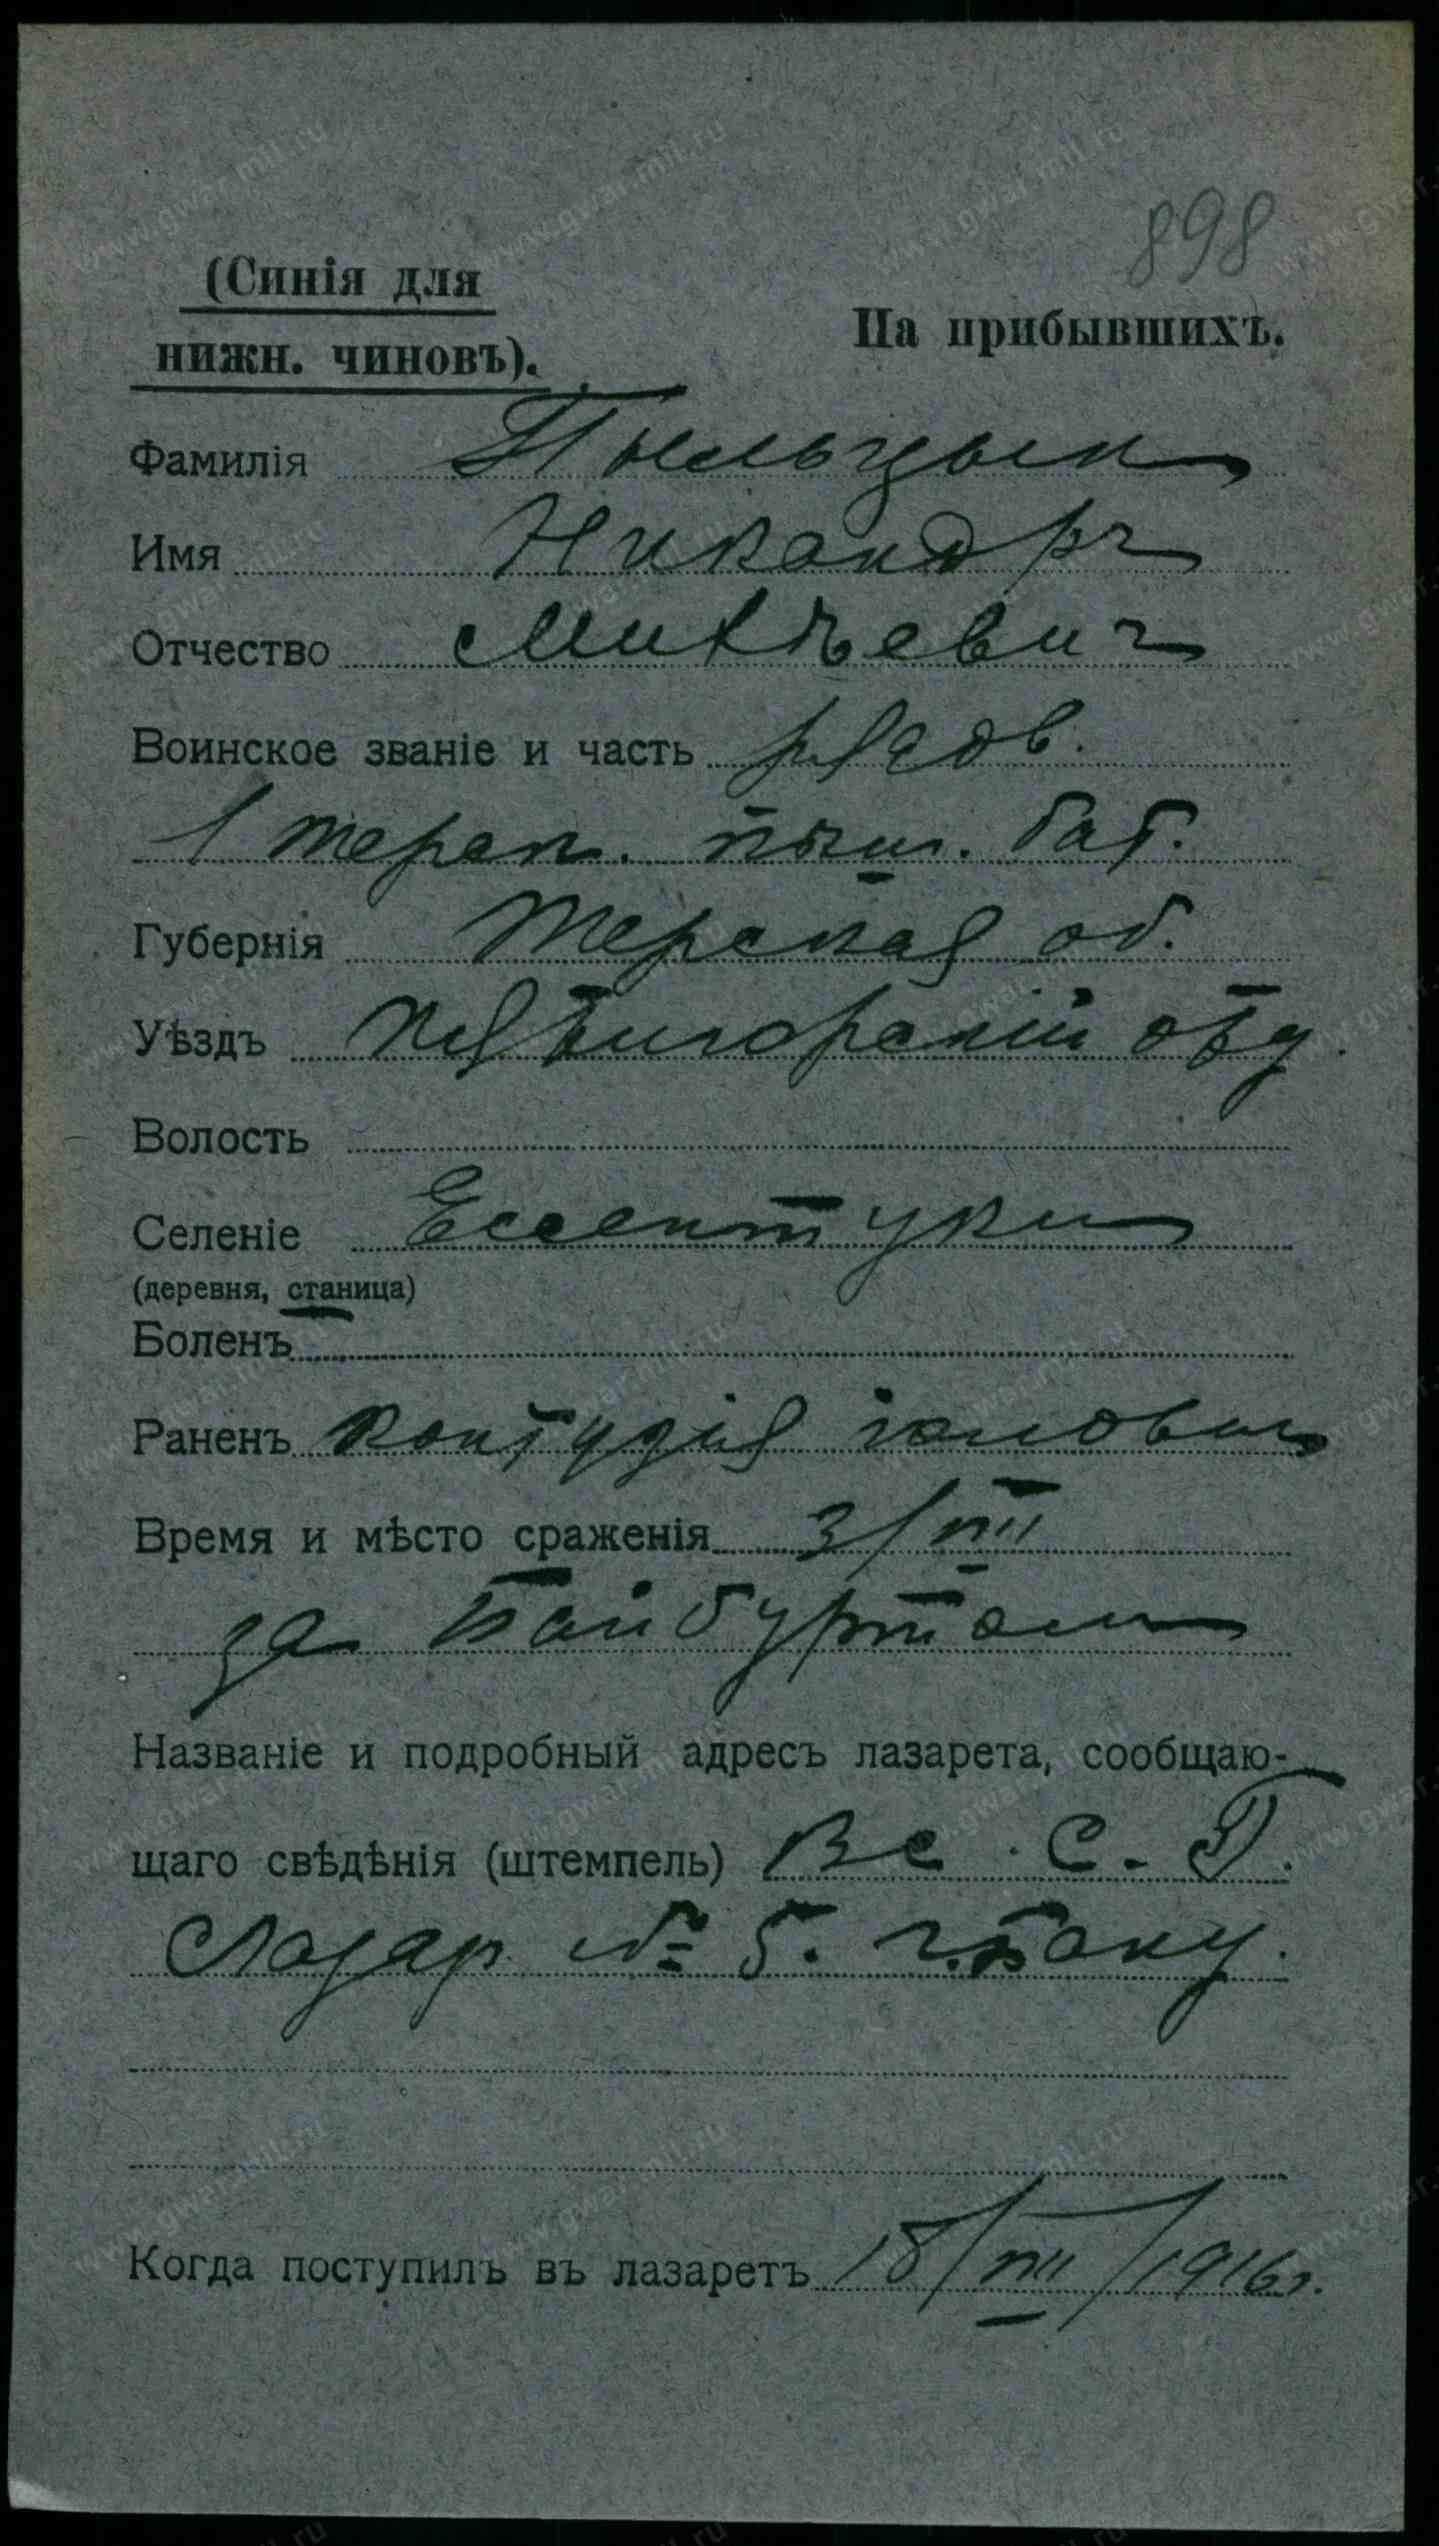 898
(Синія для
нижн. чиновъ).
На прибывшихъ.
Фамилія Пыльцын
Имя Никандръ
Отчество Михѣевич
Воинское званіе и часть рядов.
1 терск. пѣш. бат.
Губернія Терская об.
Уѣздъ Пятигорскій отд
Волость
Селеніе Ессентуки
(деревня, станица)
Боленъ
Раненъ контузія головы
Время и мѣсто сраженія 3/VII
за Байбуртом
Названіе и подробный адресъ лазарета, сообщаю-
щаго свѣдѣнія (штемпель) Вс. С. Г.
Лазар. № 5. г. Баку.
Когда поступилъ въ лазаретъ 18/VII/1916г.
www.gwar.mil.ru